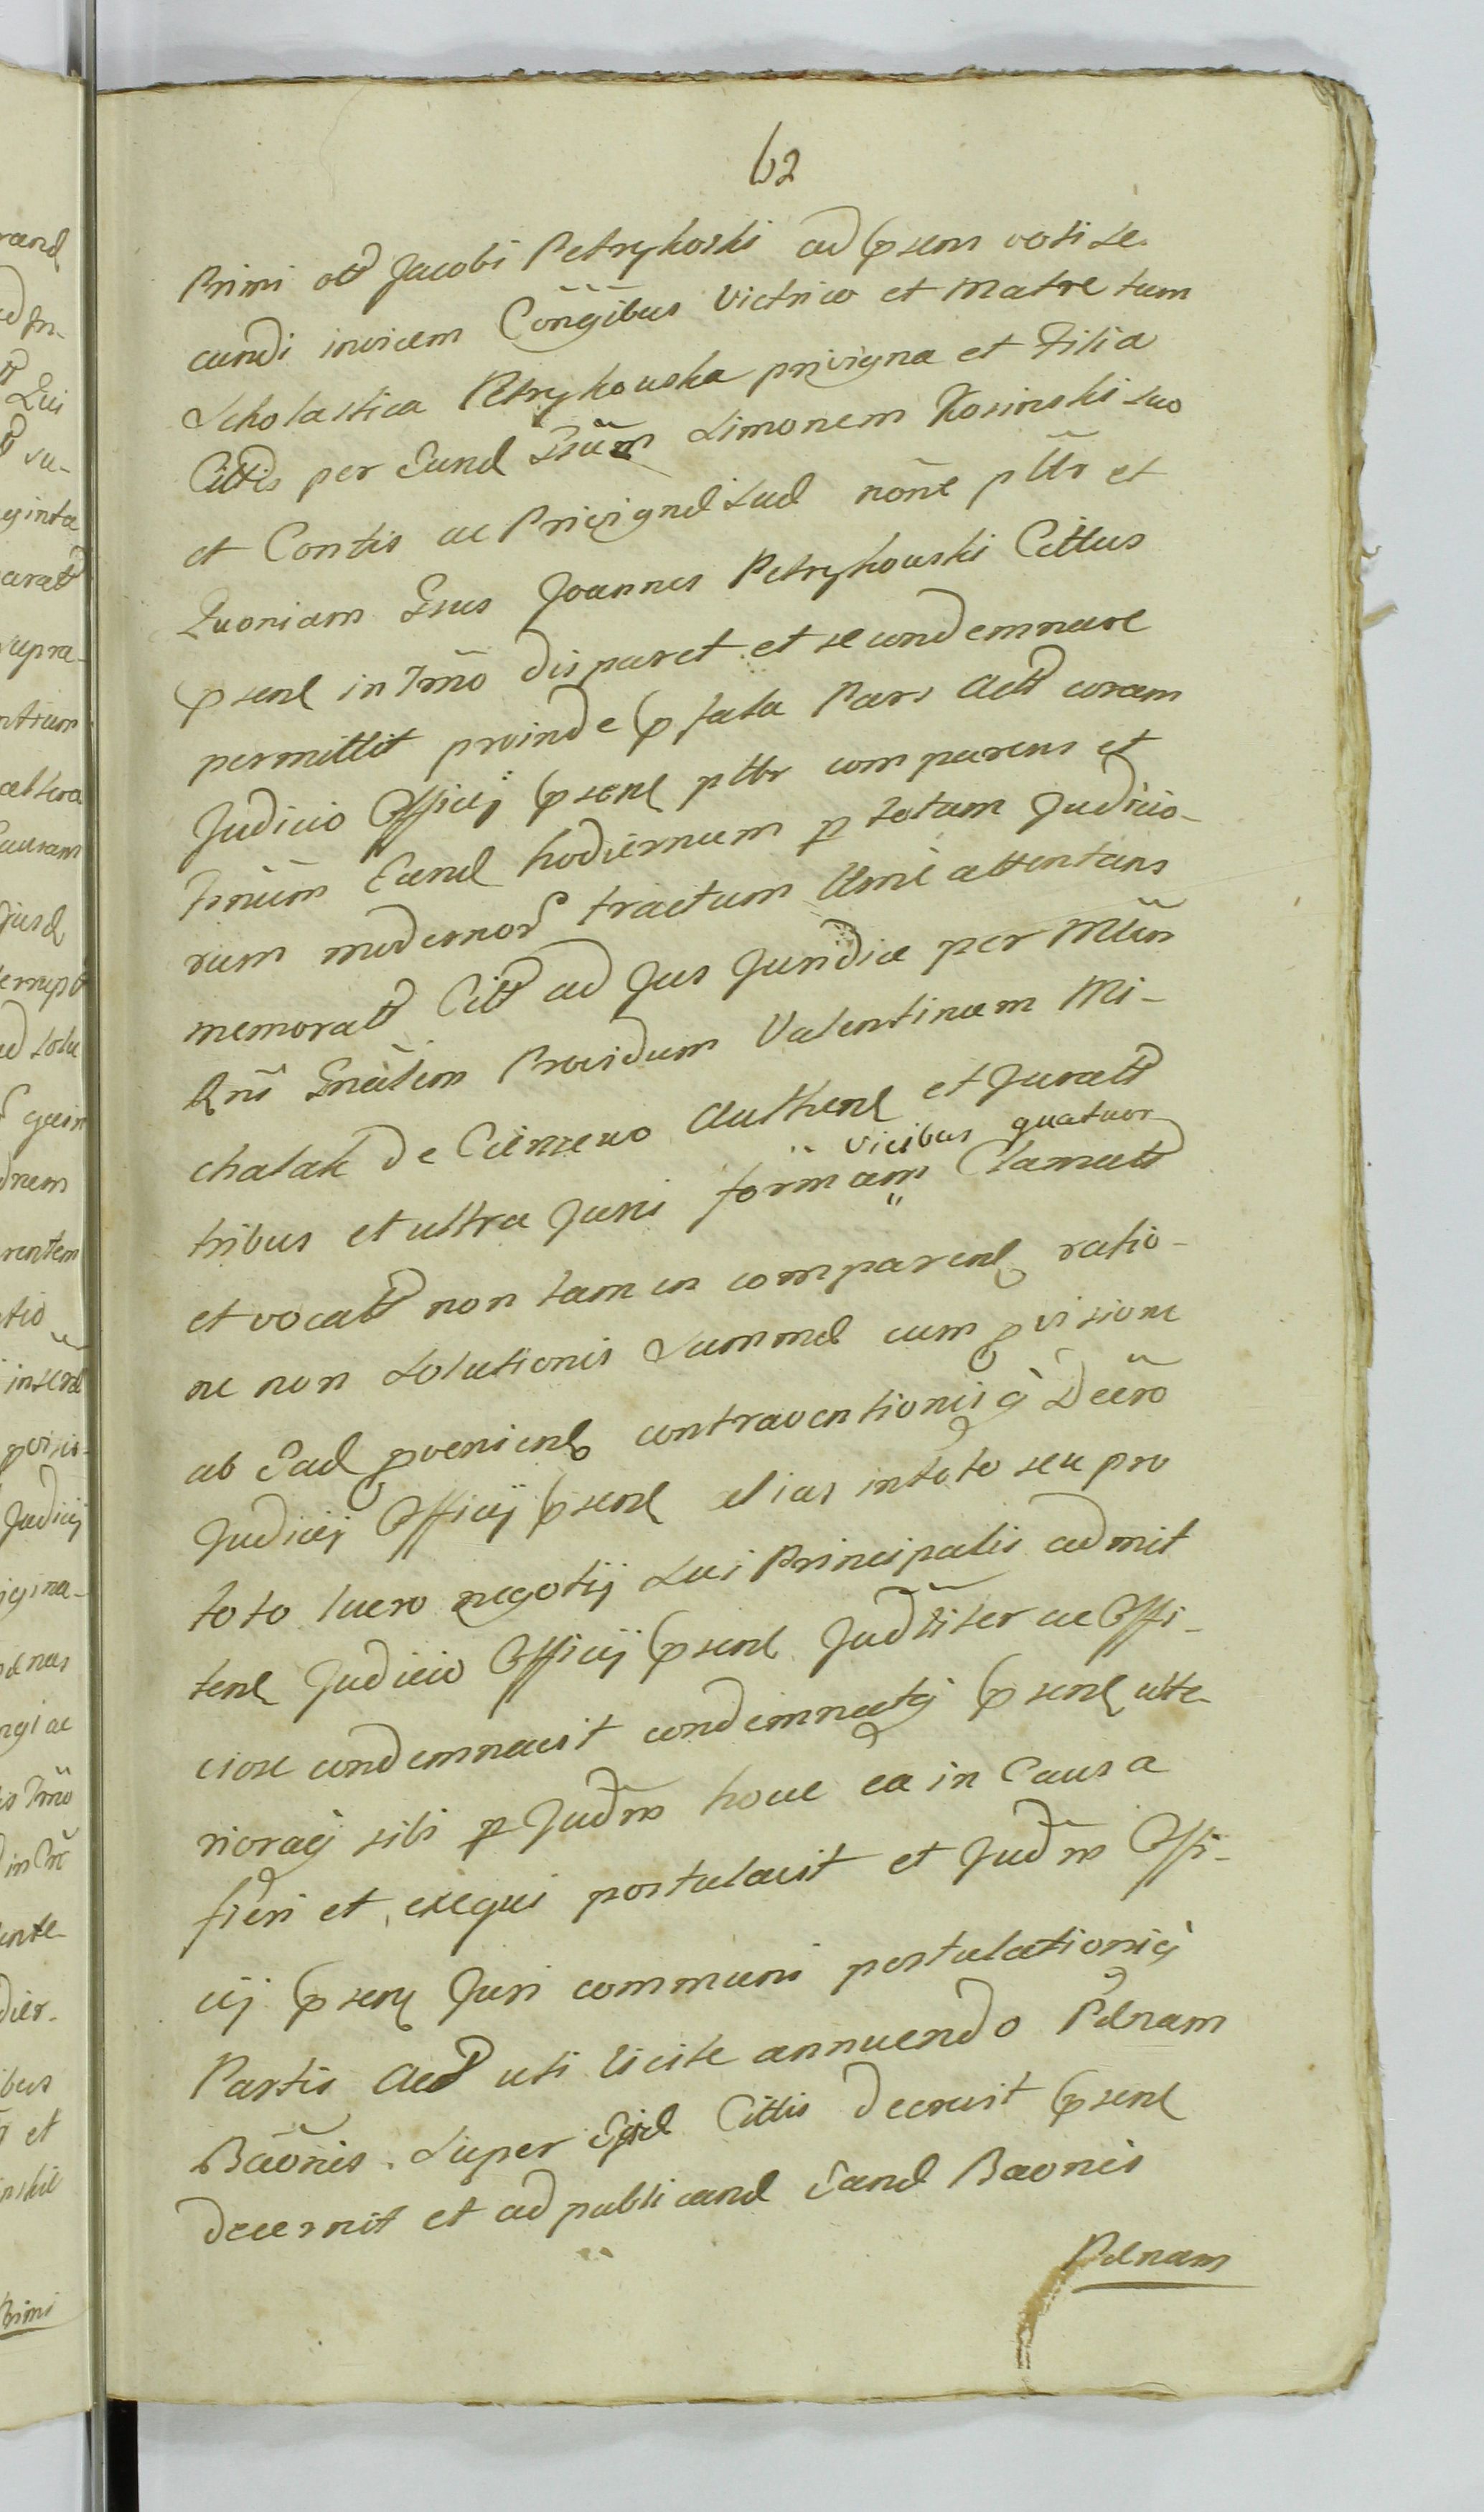 62
Primi ott Jacobi Petrykoski ad psens voti se-
cundi invicem Coñgibus Victrico et Matre tum
Scholastica Petrykouska privigna et Filia
Cittis per Eund Gsũm Simonem Kosinski suo
et Contis ac Privignæ suæ noñe pttr et
Quoniam Gsus Joannes Petrykouski Cittus
psenl in Tmõ disparet et se condemnare
permittit proinde pfata Pars Actt coram
Judicio Officij psenl pttr comparens et
Trnũm Eand hodiernum p totam Judicio-
rum modernor tractum Ame attentans
memoratt Citt ad Jus Juridice per Mtũm
Rni Gnãlem Providum Valentinum Mi-
chalak de Cienzewo Authenl et Juratt
tribus et ultra Juris formam vicibus quatuor Clamatt
et vocatt non tamen comparenl ratio-
ne non Solutionis Summæ cum pvisione
ab Ead pvenienl contraventionisq̀ Decro
Judicij Officij psenl alias in toto seu pro
toto lucro negotij Sui Principalis admit
tenl Judicio Officij psenl Judtiter ac Offi-
ciose condemnavit condemnatq psenl ulte-
rioraq sibi p Judm hocce ea in Causa
fieri et exequi postulavit et Judm Offi-
cij psenl Juri communi postulationiq̀
Partis Actt uti licite annuendo Pænam
Bãonis Super Ejsd Cittis decrevit psenl
decernit et ad publicand Eand Baonis
Pænam